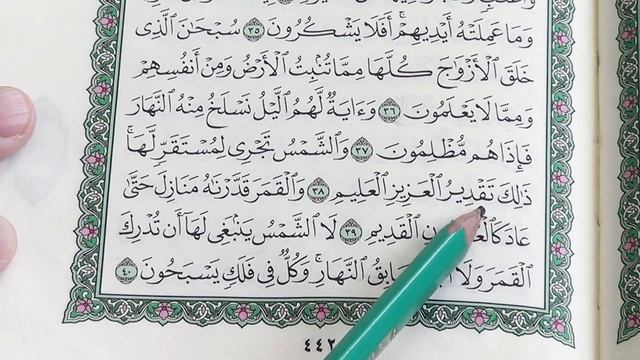 وَمَا عَمِلَتْهُ أَيْدِيهِمْ ۖ أَفَلَا يَشْكُرُونَ ٣٥ سُبْحَٰنَ ٱلَّذِى
خَلَقَ ٱلْأَزْوَٰجَ كُلَّهَا مِمَّا تُنۢبِتُ ٱلْأَرْضُ وَمِنْ أَنفُسِهِمْ
وَمِمَّا لَا يَعْلَمُونَ ٣٦ وَءَايَةٌ لَّهُمُ ٱلَّيْلُ نَسْلَخُ مِنْهُ ٱلنَّهَارَ
فَإِذَا هُم مُّظْلِمُونَ ٣٧ وَٱلشَّمْسُ تَجْرِى لِمُسْتَقَرٍّ لَّهَا ۚ
ذَٰلِكَ تَقْدِيرُ ٱلْعَزِيزِ ٱلْعَلِيمِ ٣٨ وَٱلْقَمَرَ قَدَّرْنَٰهُ مَنَازِلَ حَتَّىٰ
عَادَ ٱلْقَدِيمِ ٣٩ لَا ٱلشَّمْسُ يَنۢبَغِى لَهَآ أَن تُدْرِكَ
ٱلْقَمَرَ وَلَا سَابِقُ ٱلنَّهَارِ ۚ وَكُلٌّ فِى فَلَكٍ يَسْبَحُونَ ٤٠
٤٤٢